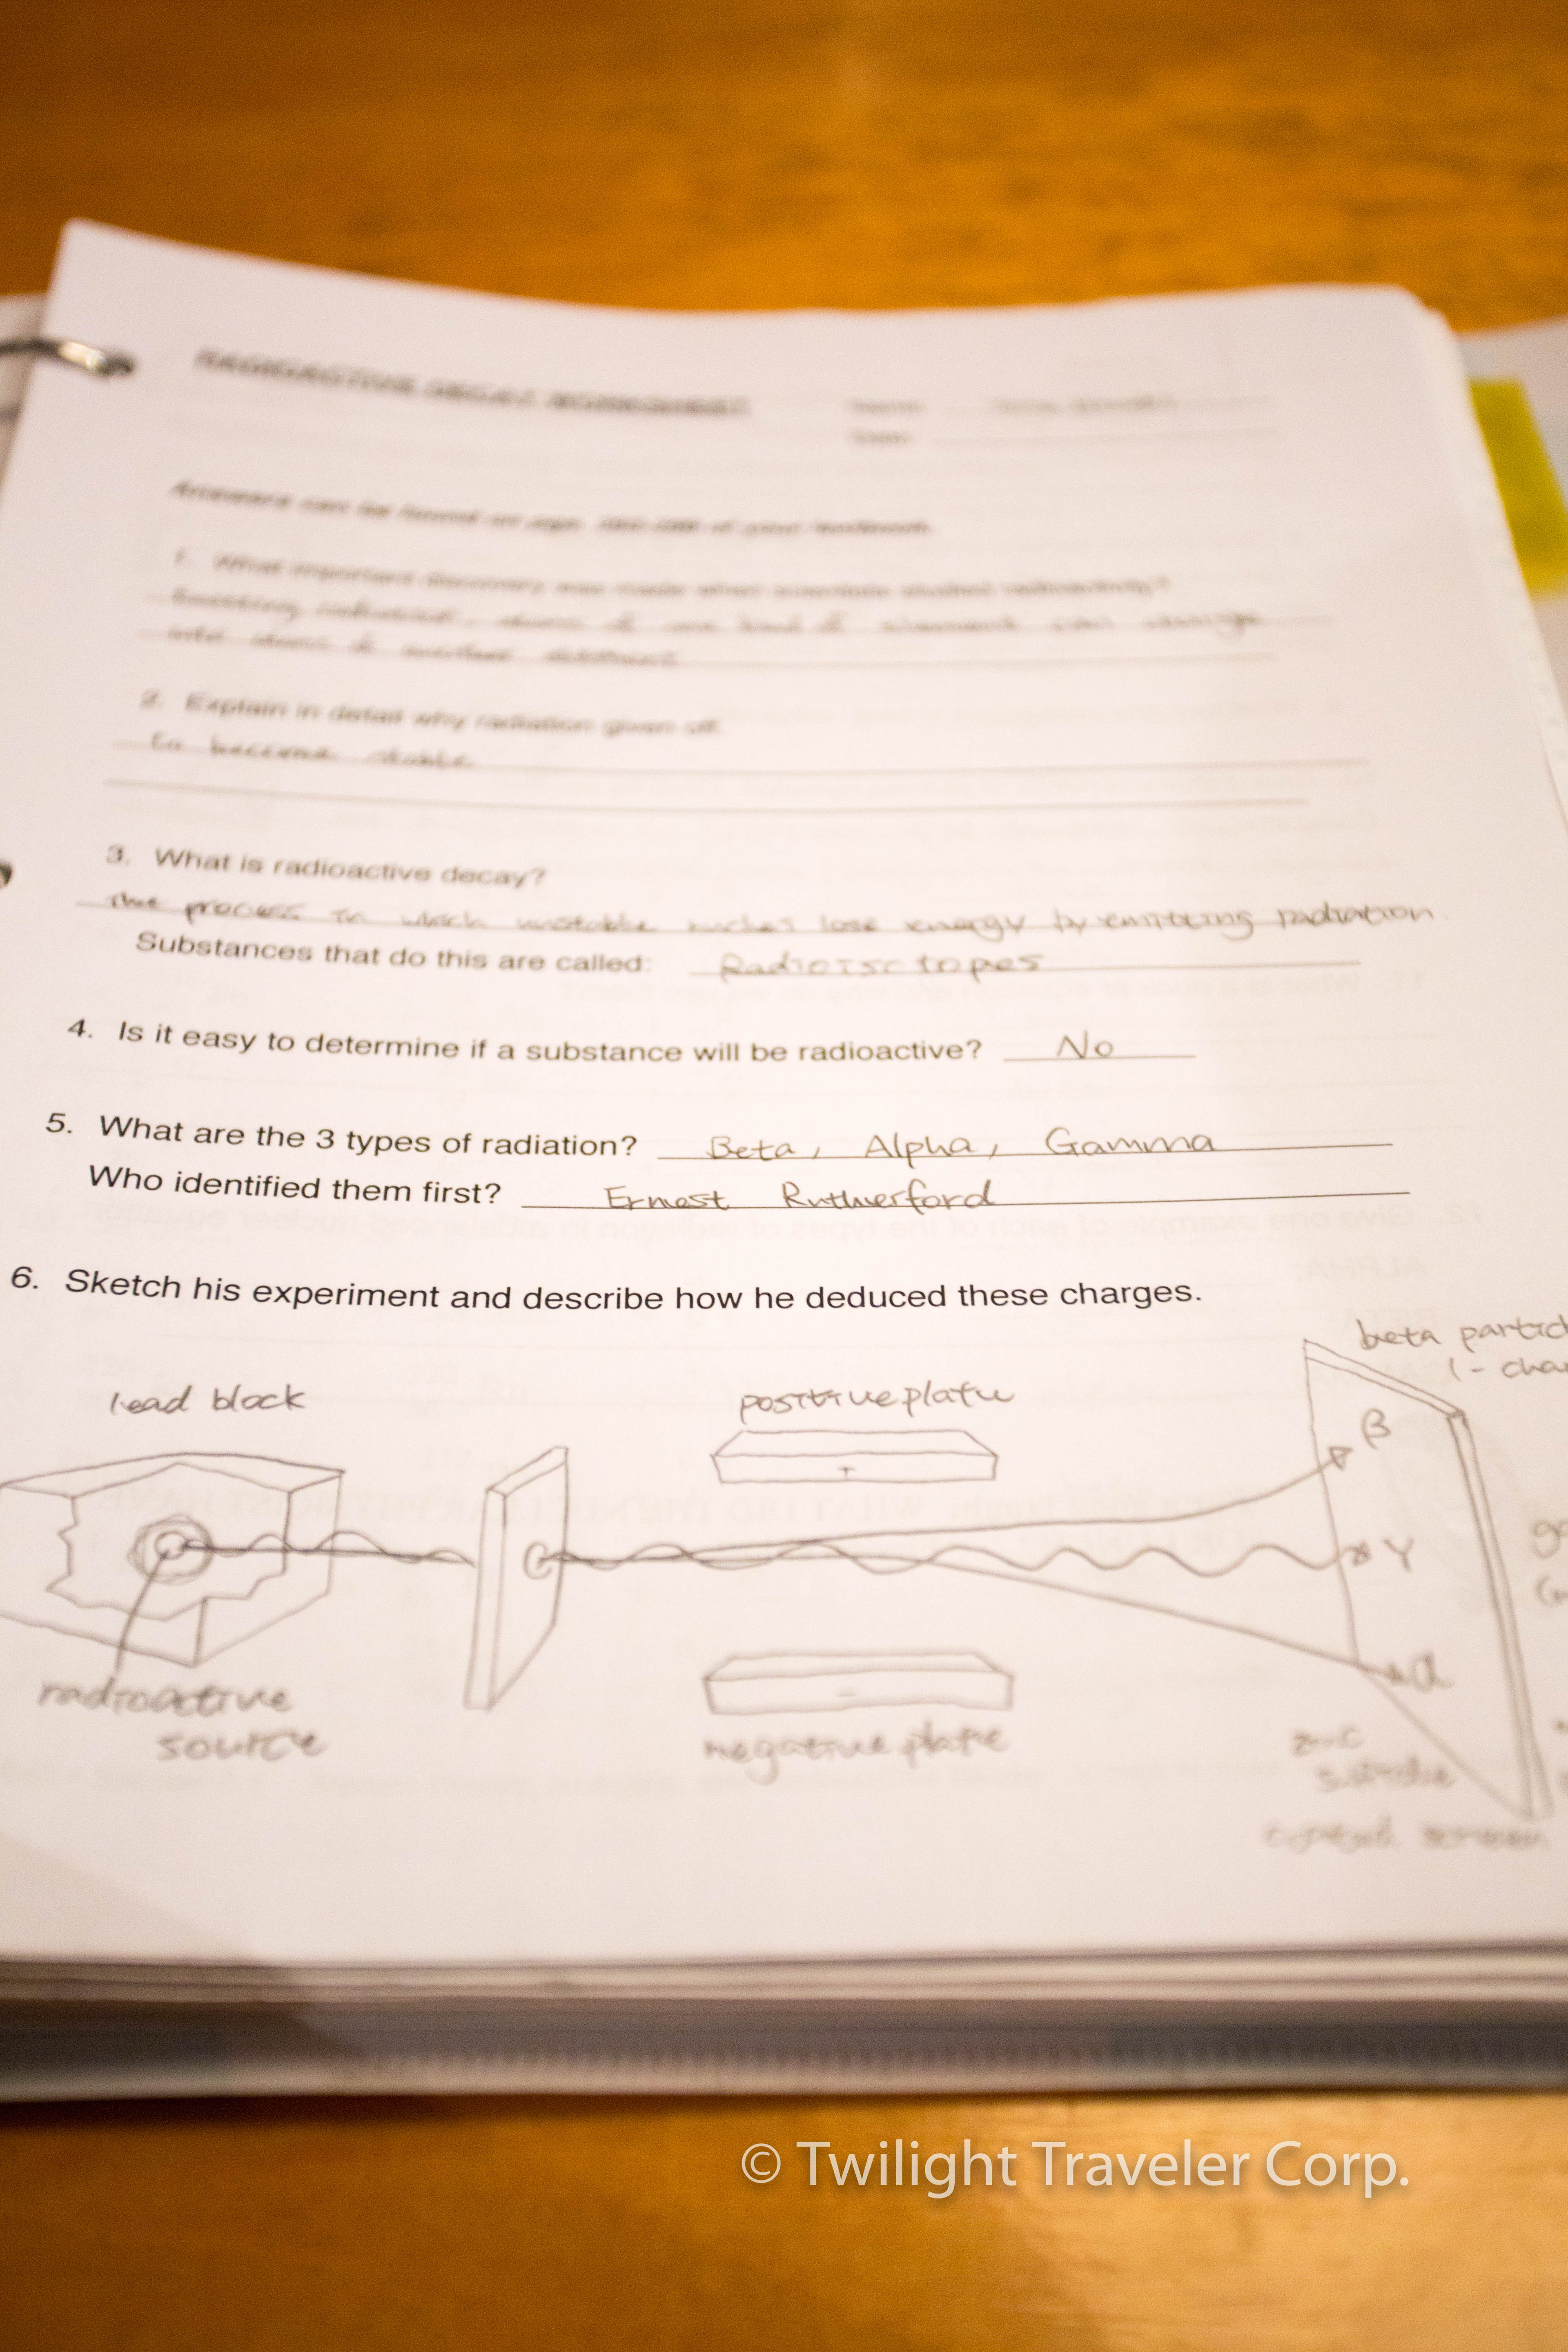 RADIOACTIVE DECAY WORKSHEET
Name:
Date:
Answers can be found on pgs. of your textbook.
1. What important discovery was made when scientists studied radioactivity?
Emitting radiation, atoms of one kind of element can change
into atoms of another element
2. Explain in detail why radiation given off.
to become stable
3. What is radioactive decay?
The process in which unstable nuclei lose energy by emitting radiation
Substances that do this are called: Radioisotopes
4. Is it easy to determine if a substance will be radioactive? No
5. What are the 3 types of radiation? Beta, Alpha, Gamma
Who identified them first? Ernest Rutherford
6. Sketch his experiment and describe how he deduced these charges.
beta partic
(- cha
lead block
positive plate
+
β
γ
α
radioactive
source
-
negative plate
zinc
sulfide
coated screen
© Twilight Traveler Corp.